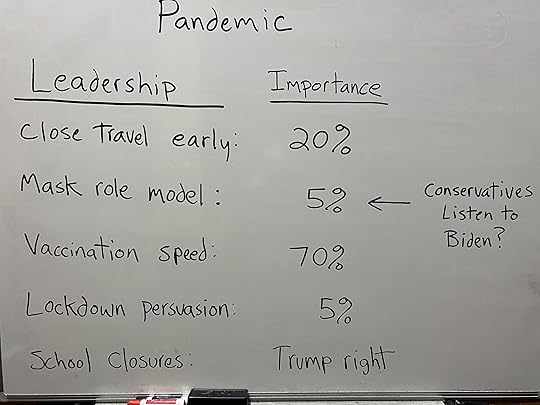 Pandemic
Leadership Importance
Close Travel early: 20%
Mask role model: 5% ← Conservatives
Listen to
Biden?
Vaccination speed: 70%
Lockdown persuasion: 5%
School Closures: Trump right